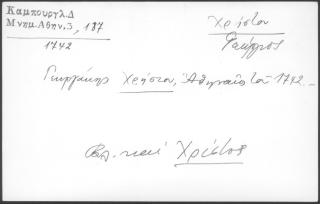 Καμπουργλ.Δ
Μνημ.Αθην.3, 187
1742
Χρήστου
Γεώργιος
Γεωργάκης Χρήστου, Ἀθηναῖος τοῦ 1742.-
Βλ. καὶ Χρίστος